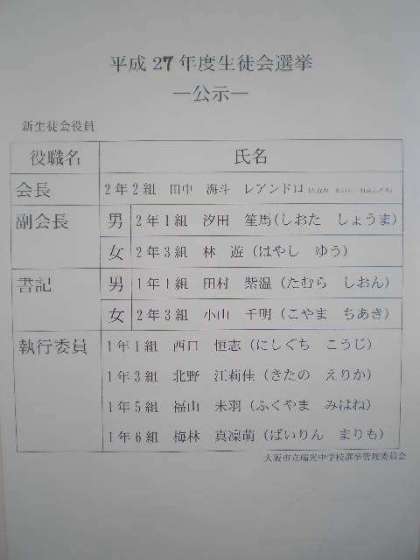 平成27年度生徒会選挙
―公示―
新生徒会役員
役職名 氏名
会長 2年2組 田中 海斗 レアンドロ
副会長 男 2年1組 汐田 笙馬(しおた しょうま)
女 2年3組 林 遊(はやし ゆう)
書記 男 1年1組 田村 紫温(たむら しおん)
女 2年3組 小山 千明(こやま ちあき)
執行委員 1年1組 西口 恒志(にしぐち こうじ)
1年3組 北野 江莉佳(きたの えりか)
1年5組 福山 未羽(ふくやま みはね)
1年6組 梅林 真凜萌(ばいりん まりも)
大阪市立瑞光中学校選挙管理委員会